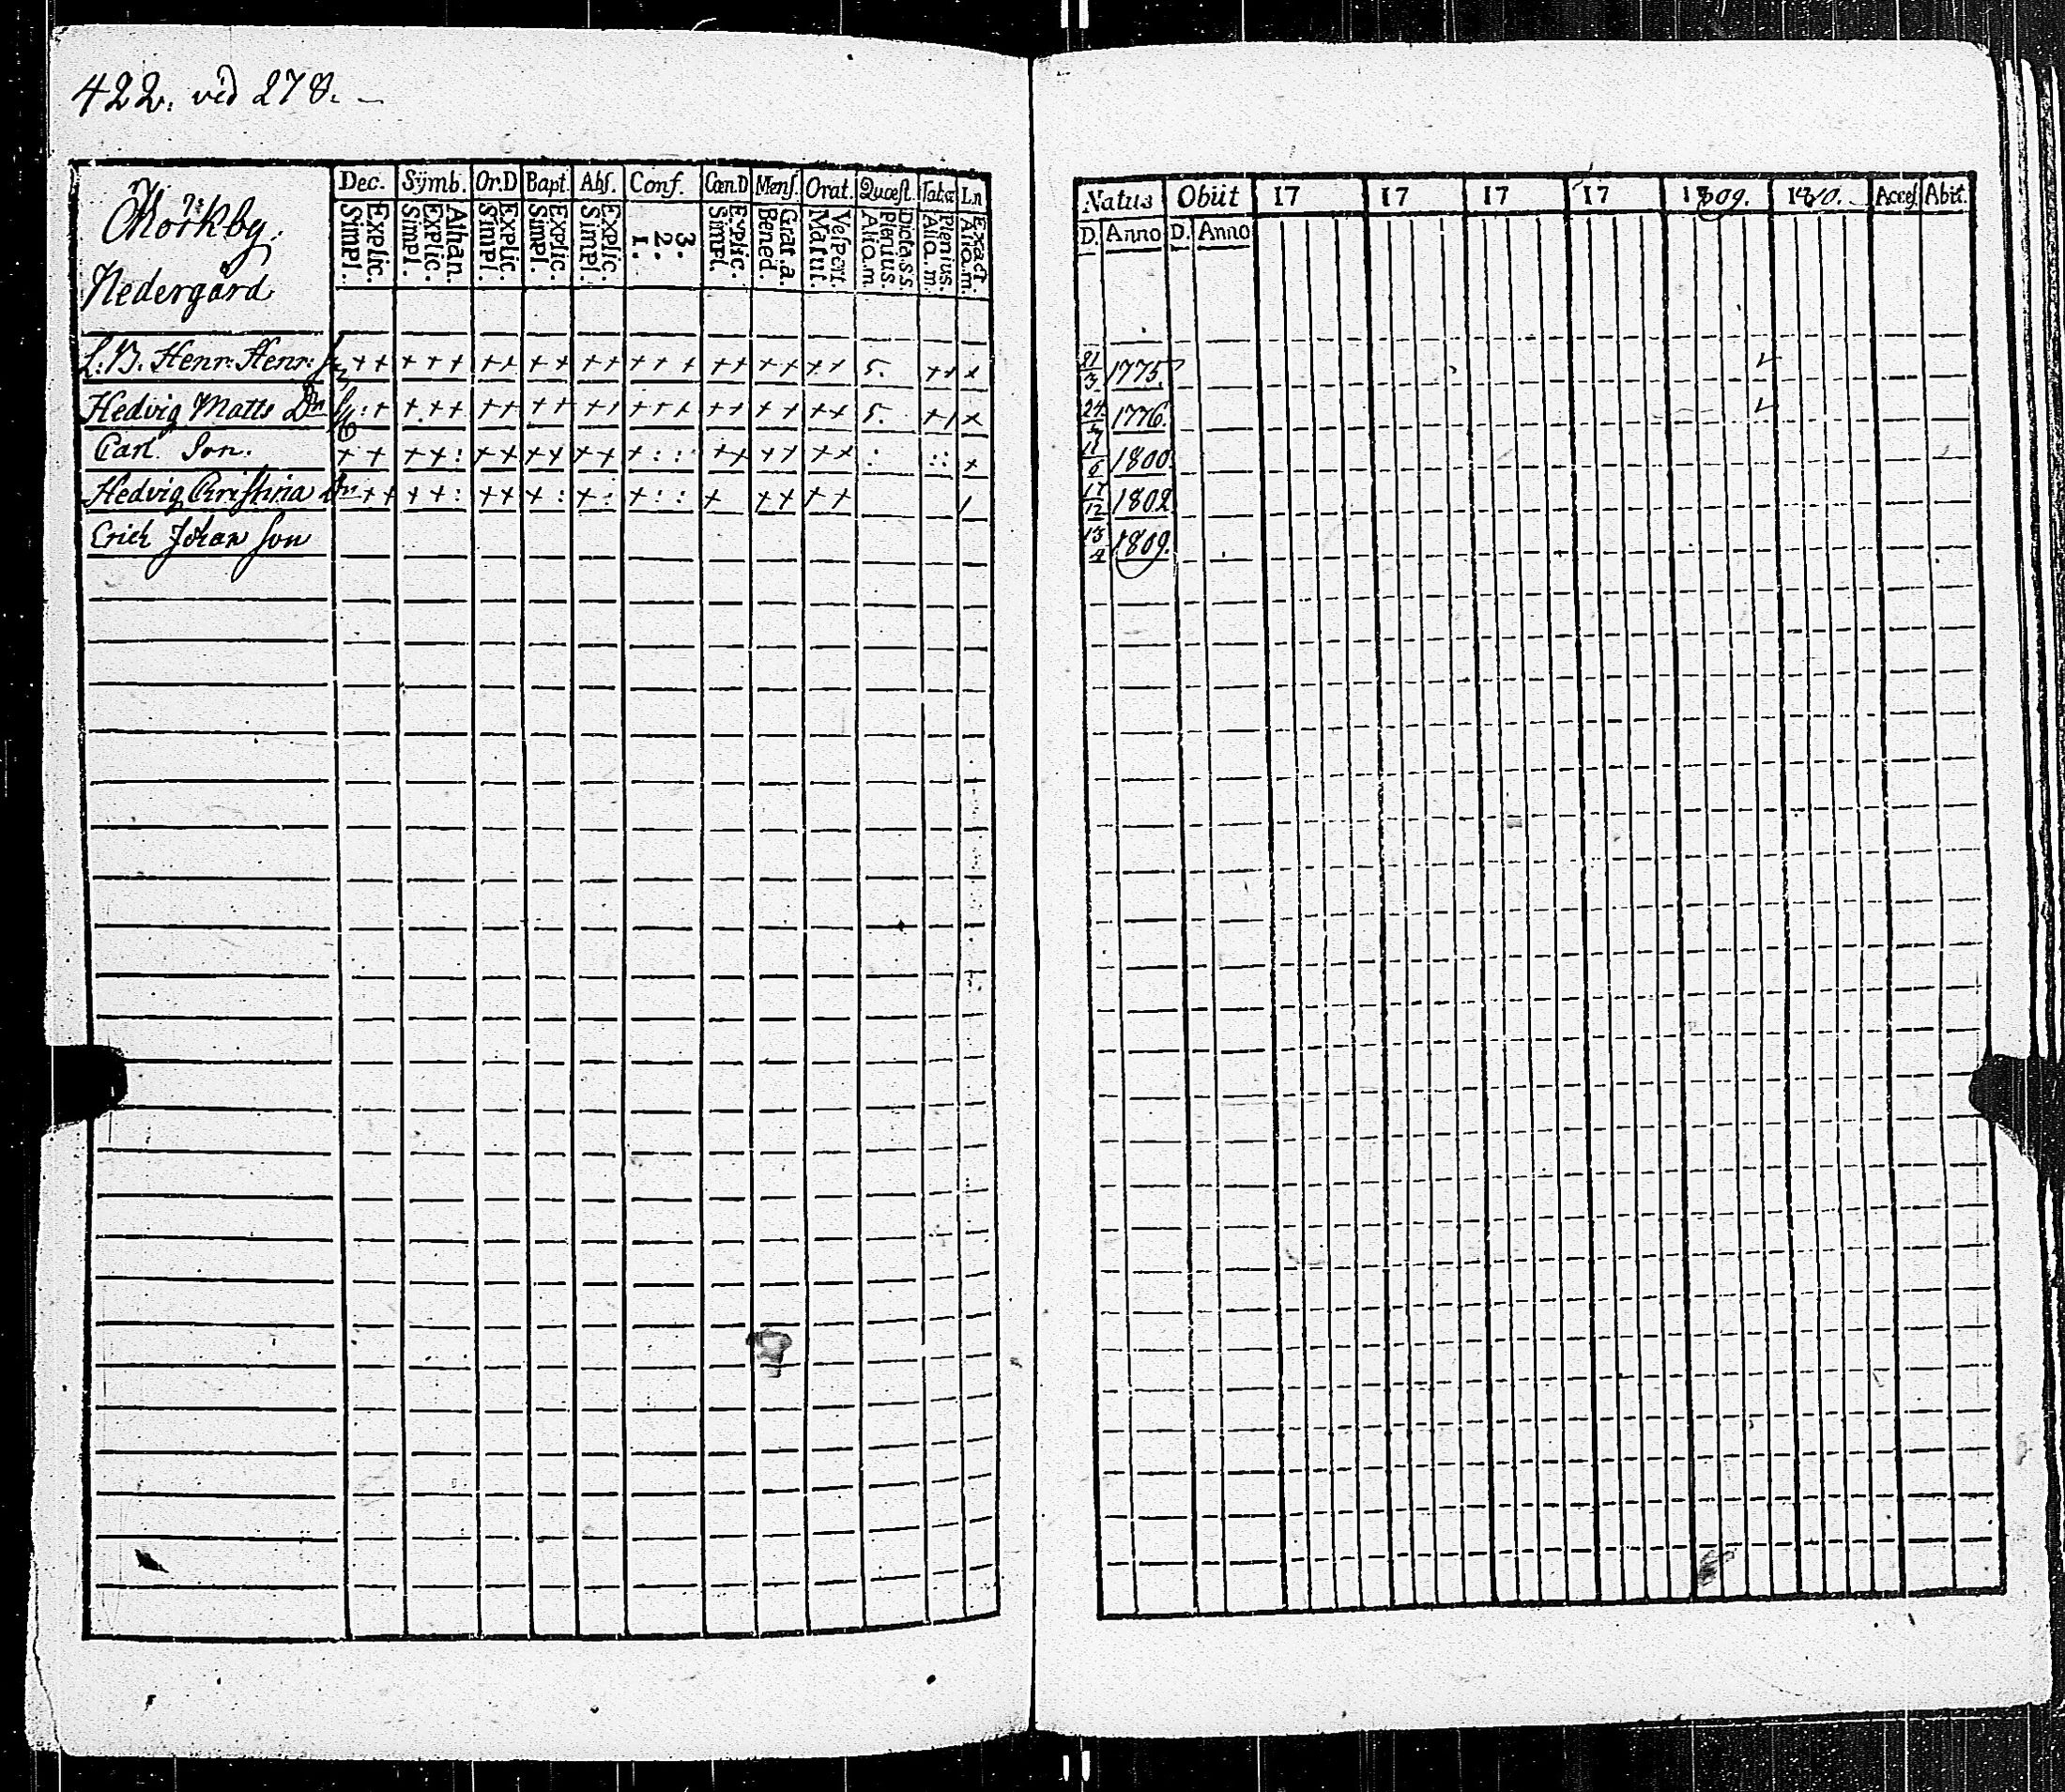 422. vid 278.
Nedergård
Dec. Symb. Or.D Bapt. Abs. Conf. Cœn.D Mens. Orat. Quœst. Ln
Explic. Simpl. Athan. Explic. Simpl. Explic. Simpl. Explic. Simpl. Explic. Simpl. 3. 2. 1. Explic. Simpl. Grat. a. Bened. Vespert. Matut. Dicta.s.s. Plenius. Alio.m. Plenius. Alio.m. Exact. Alio.m.
L:B. Henr: Henr: + + + + + + + + + + + + + + + + + + + + 5. + + +
Hedvig Matts : + + + + + + + + + + + + + + + + + + + 5. + +
Carl Son. + + + + : + + + + + + + : : + + + + + + : : : +
Hedvig Christina + + + + : + + + : + : + : : + + + + +
Erich Johan son
Natus Obiit 17 17 17 17 1809. 1810. Acces. Abit.
D. Anno D. Anno
21/3 1775
24/7 1776.
11/8 1800
17/12 1802
13/2 1809.